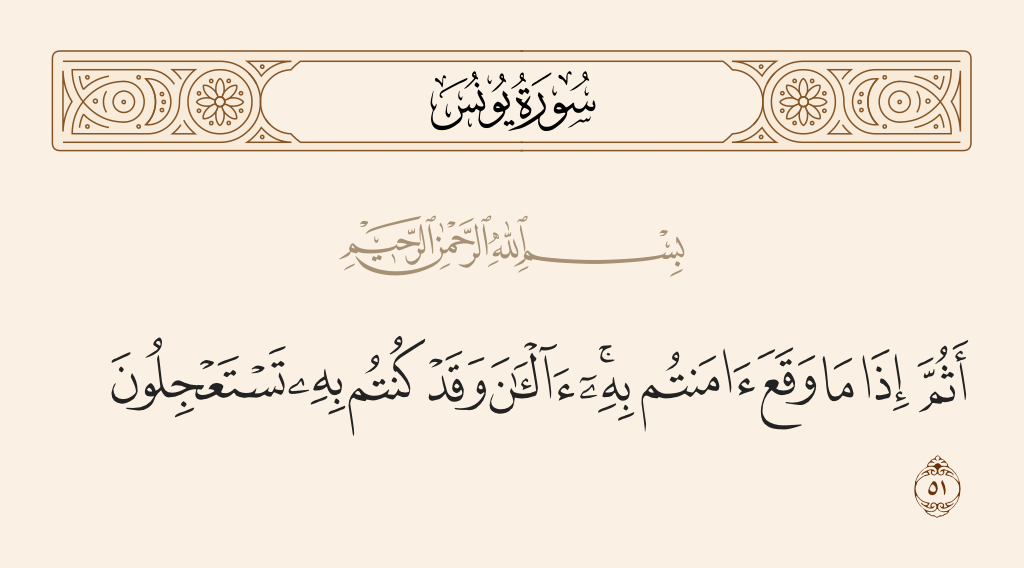 سُورَةُ يُونُسَ
بِسْمِ ٱللَّهِ ٱلرَّحْمَٰنِ ٱلرَّحِيمِ
أَثُمَّ إِذَا مَا وَقَعَ ءَامَنتُم بِهِۦٓ ۚ ءَآلْـَٰٔنَ وَقَدْ كُنتُم بِهِۦ تَسْتَعْجِلُونَ
٥١